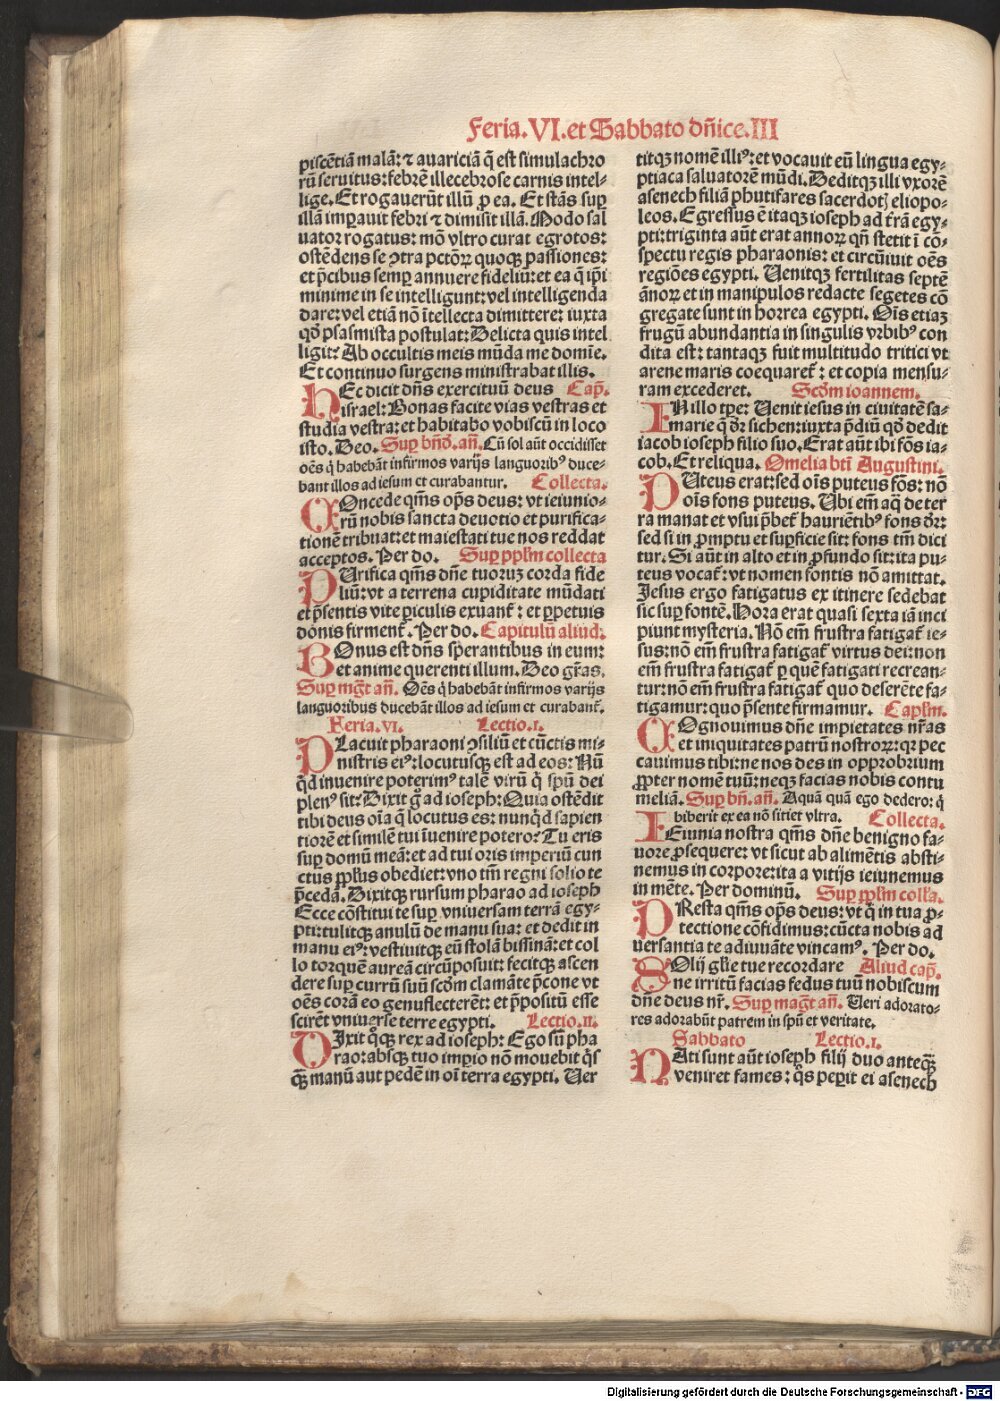 Feria. VI. et Sabbato dñice. III
piscētiā malā: ⁊ auariciā q̄ est simulachro
rū seruitus: febrē illecebrose carnis intel-
lige. Et rogauerūt illū ꝓ ea. Et stās suꝑ
illā imꝑauit febri ⁊ dimisit illā. Modo sal
uator rogatus: mō vltro curat egrotos:
ostēdens se ↄtra pctōꝝ quoqꝫ passiones:
et p̄cibus semꝑ annuere fideliū: et ea q̄ ip̄i
minime in se intelligunt: vel intelligenda
dare: vel etiā nō ītellecta dimittere: iuxta
qđ psalmista postulat: Delicta quis intel
ligit? Ab occultis meis mūda me domīe.
Et continuo surgens ministrabat illis.
HEc dicit dñs exercituū deus Capꝉ.
israel: Bonas facite vias vestras et
studia vestra: et habitabo vobiscū in loco
isto. Deo. Suꝑ bñđ. añ. Cū sol aūt occidisset
oēs q̇ habebāt infirmos varijs languoribꝰ duce-
bant illos ad iesum et curabantur. Collecta.
COncede qm̄s opꝭ deus: vt ieiunio-
rū nobis sancta deuotio et purifica-
tionē tribuat: et maiestati tue nos reddat
acceptos. Per do. Suꝑ ppl̄m collecta
PUrifica qm̄s dñe tuoruꝫ corda fide
liū: vt a terrena cupiditate mūdati
et p̄sentis vite ꝑiculis exuanť: et ꝑpetuis
donis firmenť. Per do. Capitulū aliud:
BOnus est dñs sperantibus in eum:
et anime querenti illum. Deo gr̄as.
Suꝑ mg̃t añ. Oēs q̇ habebāt infirmos varijs
languoribus ducebāt illos ad iesum et curabanť.
Feria. VI. Lectio. I.
PLacuit pharaoni ↄsiliū et cūctis mi-
nistris eiꝰ: locutusqꝫ est ad eos: Nū
q̇d inuenire poterimꝰ talē virū q̇ spū dei
plenꝰ sit? Dixit g̊ ad ioseph: Quia ostēdit
tibi deus oīa q̄ locutus es: nunq̇d sapien
tiorē et similē tui īuenire potero? Tu eris
suꝑ domū meā: et ad tui oris imperiū cun
ctus ppl̄us obediet: vno tm̄ regni solio te
p̄cedā. Dixitqꝫ rursum pharao ad ioseph
Ecce cōstitui te suꝑ vniuersam terrā egy-
pti: tulitqꝫ anulū de manu sua: et dedit in
manu eiꝰ: vestiuitqꝫ eū stolā bissinā: et col
lo torquē aureā circūposuit: fecitqꝫ ascen
dere suꝑ currū suū scđm clamāte p̄cone vt
oēs corā eo genuflecterēt: et p̄positū esse
scirēt vniuerse terre egypti. Lectio. II.
DIxit q̊qꝫ rex ad ioseph: Ego sū pha
rao: absqꝫ tuo imꝑio nō mouebit q̇s
q̄ꝫ manū aut pedē in oī terra egypti. Uer
titqꝫ nomē illiꝰ: et vocauit eū lingua egy-
ptiaca saluatorē mūdi. Deditqꝫ illi vxorē
asenech filiā phutifares sacerdotꝭ eliopo-
leos. Egressus ē itaqꝫ ioseph ad t̄rā egy-
pti: triginta aūt erat annoꝝ qñ stetit ī cō-
spectu regis pharaonis: et circūiuit oēs
regiōes egypti. Uenitqꝫ fertilitas septē
ānoꝝ et in manipulos redacte segetes cō
gregate sunt in horrea egypti. Oīs etiaꝫ
frugū abundantia in singulis vrbibꝰ con
dita est: tantaqꝫ fuit multitudo tritici vt
arene maris coequareť: et copia mensu-
ram excederet. Scđm ioannem.
IN illo tꝑe: Uenit iesus in ciuitatē sa-
marie q̄ dr̄ sichen: iuxta p̄diū qđ dedit
iacob ioseph filio suo. Erat aūt ibi fōs ia-
cob. Et reliqua. Omelia btī Augustini.
PUteus erat: sed oīs puteus fōs: nō
oīs fons puteus. Ubi em̄ aq̄ de ter
ra manat et vsui p̄beť haurientibꝰ fons dr̄:
sed si in ꝓmptu et suꝑficie sit: fons tm̄ dici
tur. Si aūt in alto et in ꝓfundo sit: ita pu-
teus vocať: vt nomen fontis nō amittat.
Jesus ergo fatigatus ex itinere sedebat
sic suꝑ fontē. Hora erat quasi sexta iā inci
piunt mysteria. Nō em̄ frustra fatigať ie-
sus: nō em̄ frustra fatigať virtus dei: non
em̄ frustra fatigať ꝑ quē fatigati recrean-
tur: nō em̄ frustra fatigať quo deserēte fa-
tigamur: quo p̄sente firmamur. Capl̄m.
COgnouimus dñe impietates nr̄as
et iniquitates patrū nostroꝝ: qꝛ pec
cauimus tibi: ne nos des in opprobrium
ꝓpter nomē tuū: neqꝫ facias nobis contu
meliā. Suꝑ bñ. añ. Aquā quā ego dedero: q̇
biberit ex ea nō sitiet vltra. Collecta.
IEiunia nostra qm̄s dñe benigno fa-
uore ꝓsequere: vt sicut ab alimētis absti-
nemus in corpore: ita a vitijs ieiunemus
in mēte. Per dominū. Suꝑ ppl̄m coll̄a.
PResta qm̄s opꝭ deus: vt q̇ in tua ꝓ-
tectione cōfidimus: cūcta nobis ad
uersantia te adiuuāte vincamꝰ. Per do.
SOlij gl̄ie tue recordare Aliud capꝉ.
ne irritū facias fedus tuū nobiscum
dñe deus nr̄. Suꝑ mag̃t añ. Ueri adorato-
res adorabūt patrem in spū et veritate.
Sabbato Lectio. I.
NAti sunt aūt ioseph filij duo anteq̄ꝫ
veniret fames: q̇s peꝑit ei asenech
Digitalisierung gefördert durch die Deutsche Forschungsgemeinschaft - DFG